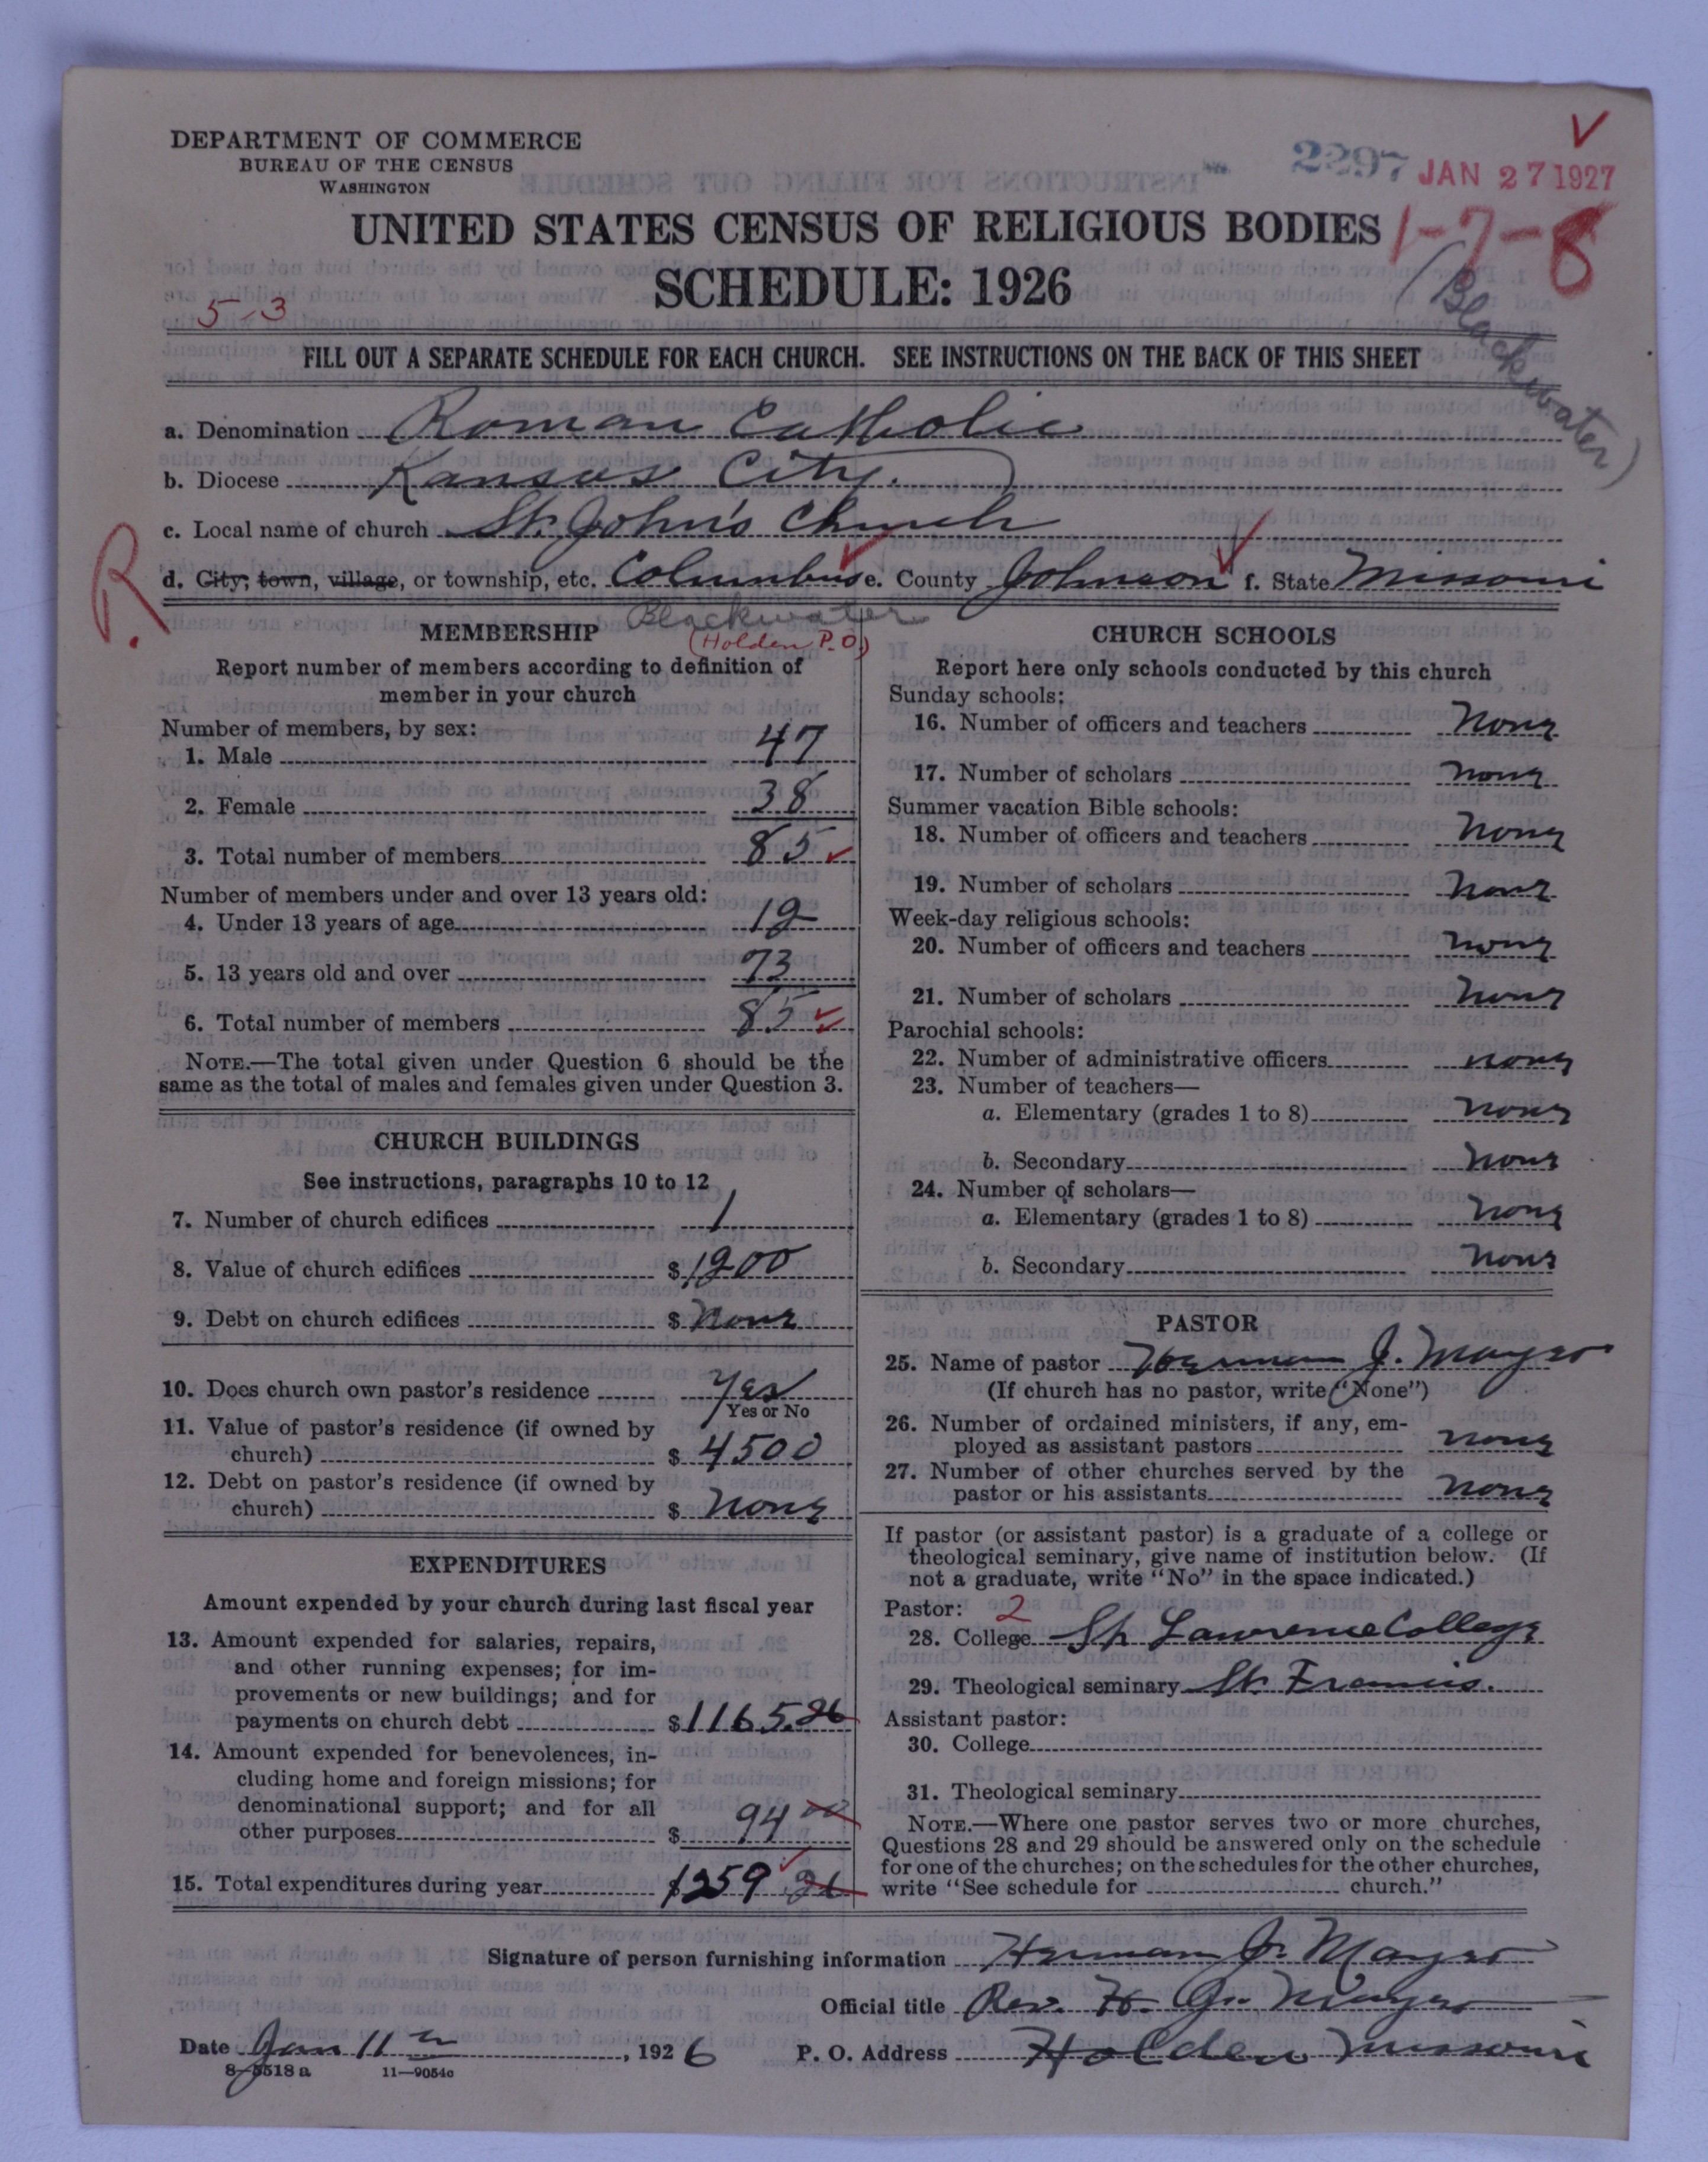 DEPARTMENT OF COMMERCE
BUREAU OF THE CENSUS
WASHINGTON
2297 JAN 27 1927
UNITED STATES CENSUS OF RELIGIOUS BODIES
1-7-8
SCHEDULE: 1926
(Blackwater)
5-3
FILL OUT A SEPARATE SCHEDULE FOR EACH CHURCH. SEE INSTRUCTIONS ON THE BACK OF THIS SHEET
a. Denomination Roman Catholic
b. Diocese Kansas City.
c. Local name of church St. John's Church
R.
d. City, town, village, or township, etc. Columbus e. County Johnson f. State Missouri
Blackwater
(Holden P.O.)
MEMBERSHIP
Report number of members according to definition of
member in your church
Number of members, by sex:
1. Male 47
2. Female 38
3. Total number of members 85
Number of members under and over 13 years old:
4. Under 13 years of age 12
5. 13 years old and over 73
6. Total number of members 85
NOTE.—The total given under Question 6 should be the
same as the total of males and females given under Question 3.
CHURCH BUILDINGS
See instructions, paragraphs 10 to 12
7. Number of church edifices 1
8. Value of church edifices $1200
9. Debt on church edifices $ None
10. Does church own pastor's residence Yes
Yes or No
11. Value of pastor's residence (if owned by
church) $ 4500
12. Debt on pastor's residence (if owned by
church) $ None
EXPENDITURES
Amount expended by your church during last fiscal year
13. Amount expended for salaries, repairs,
and other running expenses; for im-
provements or new buildings; and for
payments on church debt $1165.26
14. Amount expended for benevolences, in-
cluding home and foreign missions; for
denominational support; and for all
other purposes $ 94 00
15. Total expenditures during year $1259 26
CHURCH SCHOOLS
Report here only schools conducted by this church
Sunday schools:
16. Number of officers and teachers None
17. Number of scholars None
Summer vacation Bible schools:
18. Number of officers and teachers None
19. Number of scholars None
Week-day religious schools:
20. Number of officers and teachers None
21. Number of scholars None
Parochial schools:
22. Number of administrative officers None
23. Number of teachers—
a. Elementary (grades 1 to 8) None
b. Secondary None
24. Number of scholars—
a. Elementary (grades 1 to 8) None
b. Secondary None
PASTOR
25. Name of pastor Herman J. Mayer
(If church has no pastor, write "None")
26. Number of ordained ministers, if any, em-
ployed as assistant pastors None
27. Number of other churches served by the
pastor or his assistants None
If pastor (or assistant pastor) is a graduate of a college or
theological seminary, give name of institution below. (If
not a graduate, write "No" in the space indicated.)
Pastor: 2
28. College St. Lawrence College
29. Theological seminary St. Francis.
Assistant pastor:
30. College
31. Theological seminary
NOTE.—Where one pastor serves two or more churches,
Questions 28 and 29 should be answered only on the schedule
for one of the churches; on the schedules for the other churches,
write "See schedule for church."
Signature of person furnishing information Herman J. Mayer
Official title Rev. H. J. Mayer
Date Jan 11th, 1926 P. O. Address Holden Missouri
8-5518 a 11—9054c